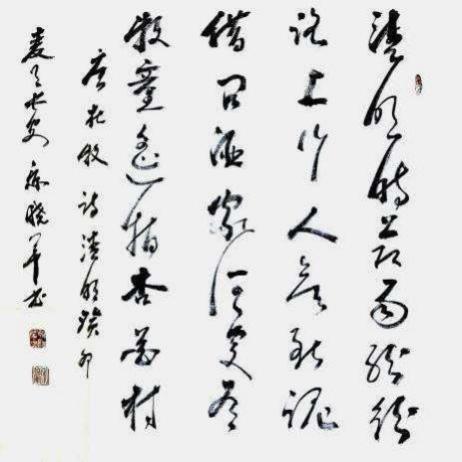 清明时节雨纷纷
路上行人欲断魂
借问酒家何处有
牧童遥指杏花村
唐杜牧诗清明癸卯
长安晓军书